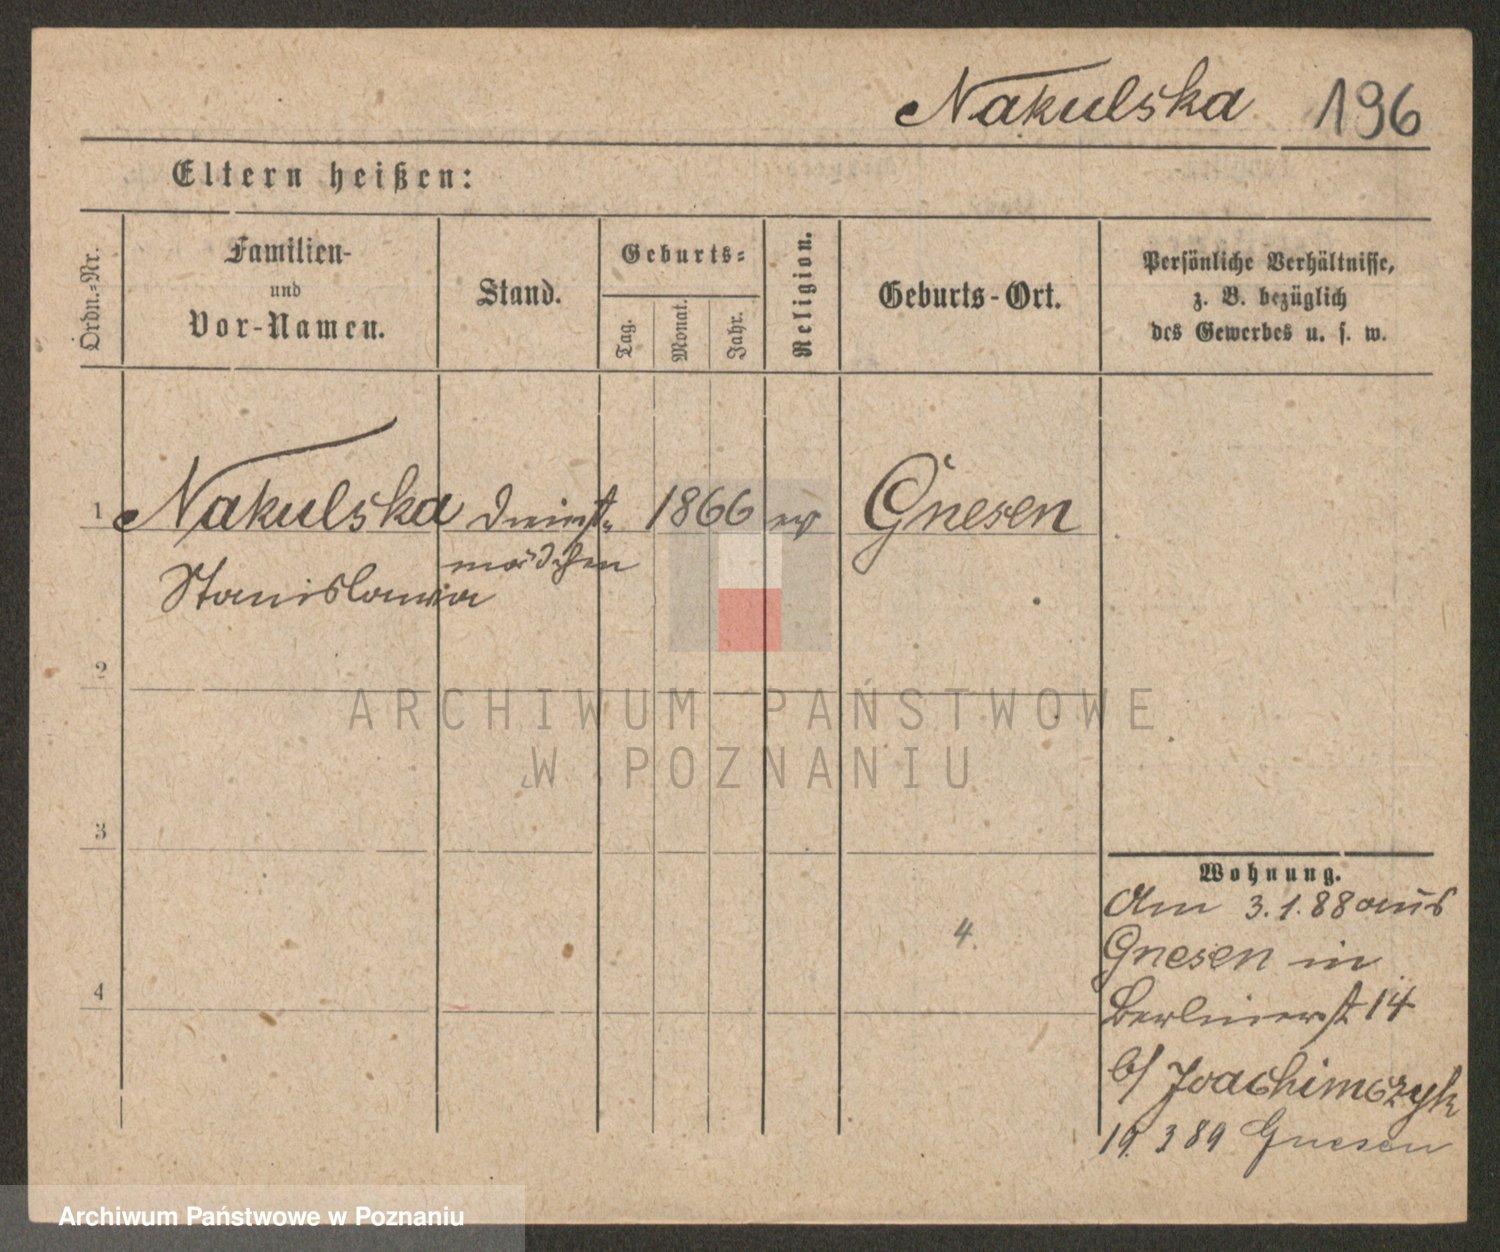 Nakulska 196
Eltern heißen:
Ordn.-Nr.
Familien-
und
Vor-Namen.
Stand.
Geburts-
Tag.
Monat.
Jahr.
Religion.
Geburts-Ort.
Persönliche Verhältnisse,
z. B. bezüglich
des Gewerbes u. s. w.
1 Nakulska Dienst- 1866 Gnesen
mädchen
Stanislawa
2
ARCHIWUM PAŃSTWOWE
W POZNANIU
3
Wohnung.
Am 3.1.88 aus
4.
Gnesen in
4
Berlinerst 14
b/ Joachimczyk
19. 3 89 Gnesen
Archiwum Państwowe w Poznaniu